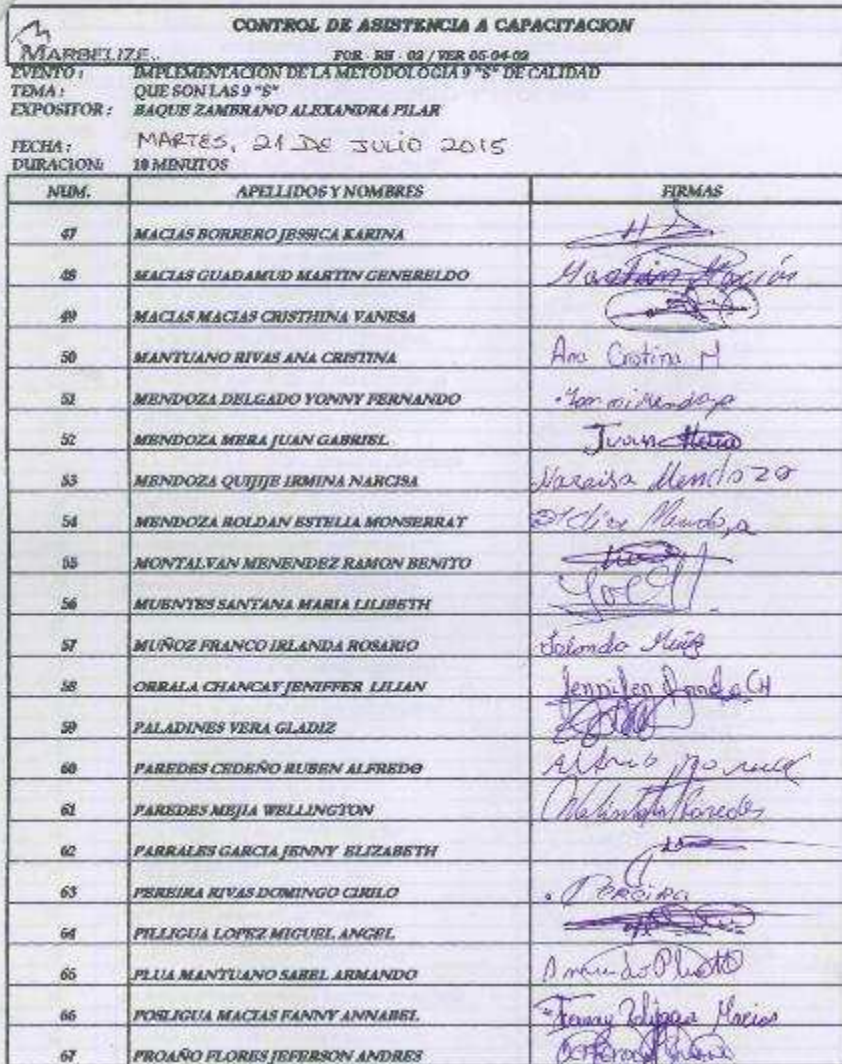 CONTROL DE ASISTENCIA A CAPACITACION
MARBELIZE
FOR - RH - 02 / VER 05-04-02
EVENTO : IMPLEMENTACION DE LA METODOLOGIA 9 "S" DE CALIDAD
TEMA : QUE SON LAS 9 "S"
EXPOSITOR : BAQUE ZAMBRANO ALEXANDRA PILAR
FECHA : MARTES, 21 DE JULIO 2015
DURACION: 10 MINUTOS
NUM. APELLIDOS Y NOMBRES FIRMAS
47 MACIAS BORRERO JESSICA KARINA
48 MACIAS GUADAMUD MARTIN GENERELDO Martin Macías
49 MACIAS MACIAS CRISTHINA VANESA
50 MANTUANO RIVAS ANA CRISTINA Ana Cristina M
51 MENDOZA DELGADO YONNY FERNANDO
52 MENDOZA MERA JUAN GABRIEL Juan Mera
53 MENDOZA QUIJIJE IRMINA NARCISA Narcisa Mendoza
54 MENDOZA ROLDAN ESTELIA MONSERRAT Mendoza
55 MONTALVAN MENENDEZ RAMON BENITO
56 MUENTES SANTANA MARIA LILIBETH
57 MUÑOZ FRANCO IRLANDA ROSARIO
58 ORRALA CHANCAY JENIFFER LILIAN Jennifer
59 PALADINES VERA GLADIZ
60 PAREDES CEDEÑO RUBEN ALFREDO
61 PAREDES MEJIA WELLINGTON Paredes
62 PARRALES GARCIA JENNY ELIZABETH
63 PEREIRA RIVAS DOMINGO CIRILO Pereira
64 PILLIGUA LOPEZ MIGUEL ANGEL
65 PLUA MANTUANO SABEL ARMANDO
66 POSLIGUA MACIAS FANNY ANNABEL Fanny Macias
67 PROAÑO FLORES JEFERSON ANDRES